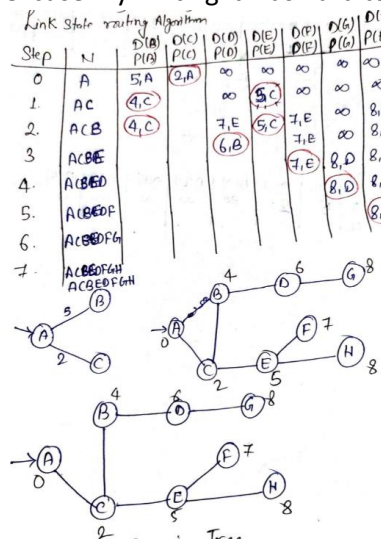 Link State routing Algorithm
Step N D(B) P(B) D(C) P(C) D(D) P(D) D(E) P(E) D(F) P(F) D(G) P(G)
0 A 5,A 2,A ∞ ∞ ∞ ∞ ∞
1. AC 4,C ∞ 5,C ∞ ∞ 8,
2. ACB 4,C 7,E 5,C 7,E ∞ 8,
3 ACBE 6,B 7,E 8,
4. ACBED 7,E 8,D 8,
5. ACBEDF 8,D 8,
6. ACBEDFG 8,
7. ACBEDFGH
ACBEDFGH
5 B
A
2 C
4 B 6 D G 8
A 0
F 7
C 2 E 5 H 8
4 B 6 D G 8
A 0
F 7
C 2 E 5 H 8